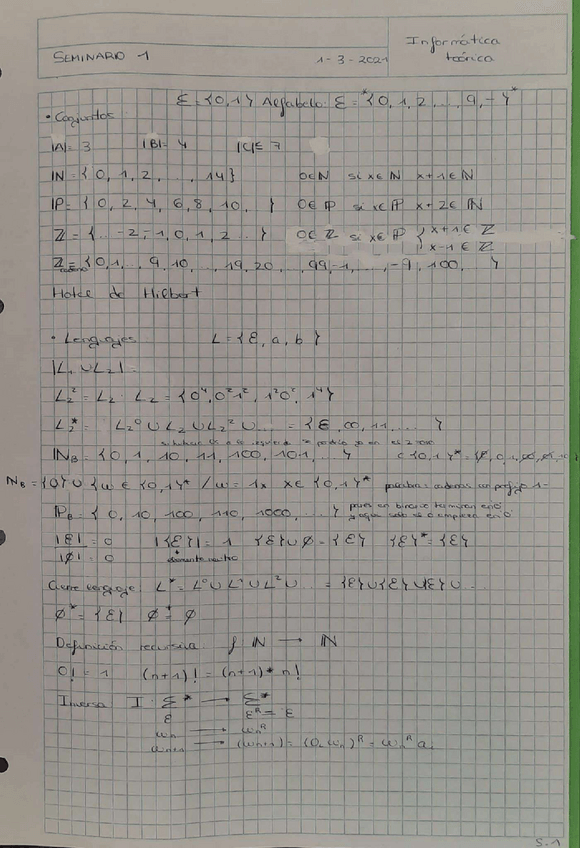 SEMINARIO 1
1-3-2021
Informática
teórica
Σ = {0,1} Alfabeto: Σ* = {0, 1, 2 ... , 9, -}*
• Conjuntos
|A| = 3 |B| = 4 |C| ≤ 7
ℕ = {0, 1, 2, ..., 14} 0∈ℕ si x∈ℕ x+1∈ℕ
ℙ = {0, 2, 4, 6, 8, 10, } 0∈ℙ si x∈ℙ x+2∈ℕ
ℤ = {... -2, -1, 0, 1, 2 ... } 0∈ℤ si x∈ℙ { x+1∈ℤ
x-1∈ℤ
ℤ = {0, 1, .. 9, 10, .., 19, 20 .., 99, -1, ..., -9, 100, }
Hotel de Hilbert
• Lenguajes L = {ε, a, b}
|L₁ ∪ L₂| =
L₂² = L₂ · L₂ = {0⁴, 0²1², 1²0², 1⁴}
L₂* = L₂⁰ ∪ L₂ ∪ L₂² ∪ ... = {ε, 00, 11, ... }
ℕ_B = {0, 1, 10, 11, 100, 101, ... } ⊂ {0,1}*
N_B = {0} ∪ {w ∈ {0,1}* / w = 1x x∈{0,1}*
ℙ_B = {0, 10, 100, 110, 1000, ... } pares en binario terminan en 0
|ε| = 0 |{ε}| = 1 {ε} ∪ ∅ = {ε} {ε}* = {ε}
|∅| = 0 elemento neutro
Cierre lenguaje L* = L⁰ ∪ L¹ ∪ L² ∪ ... = {ε} ∪ {ε} ∪ {ε} ∪ ...
∅* = {ε} ∅⁺ = ∅
Definición recursiva f ℕ → ℕ
0! = 1 (n+1)! = (n+1) * n!
Inversa I: Σ* → Σ*
ε εᴿ = ε
wₙ → wₙᴿ
wₙ₊₁ → (wₙ₊₁) = (a wₙ)ᴿ = wₙᴿ a
S-1